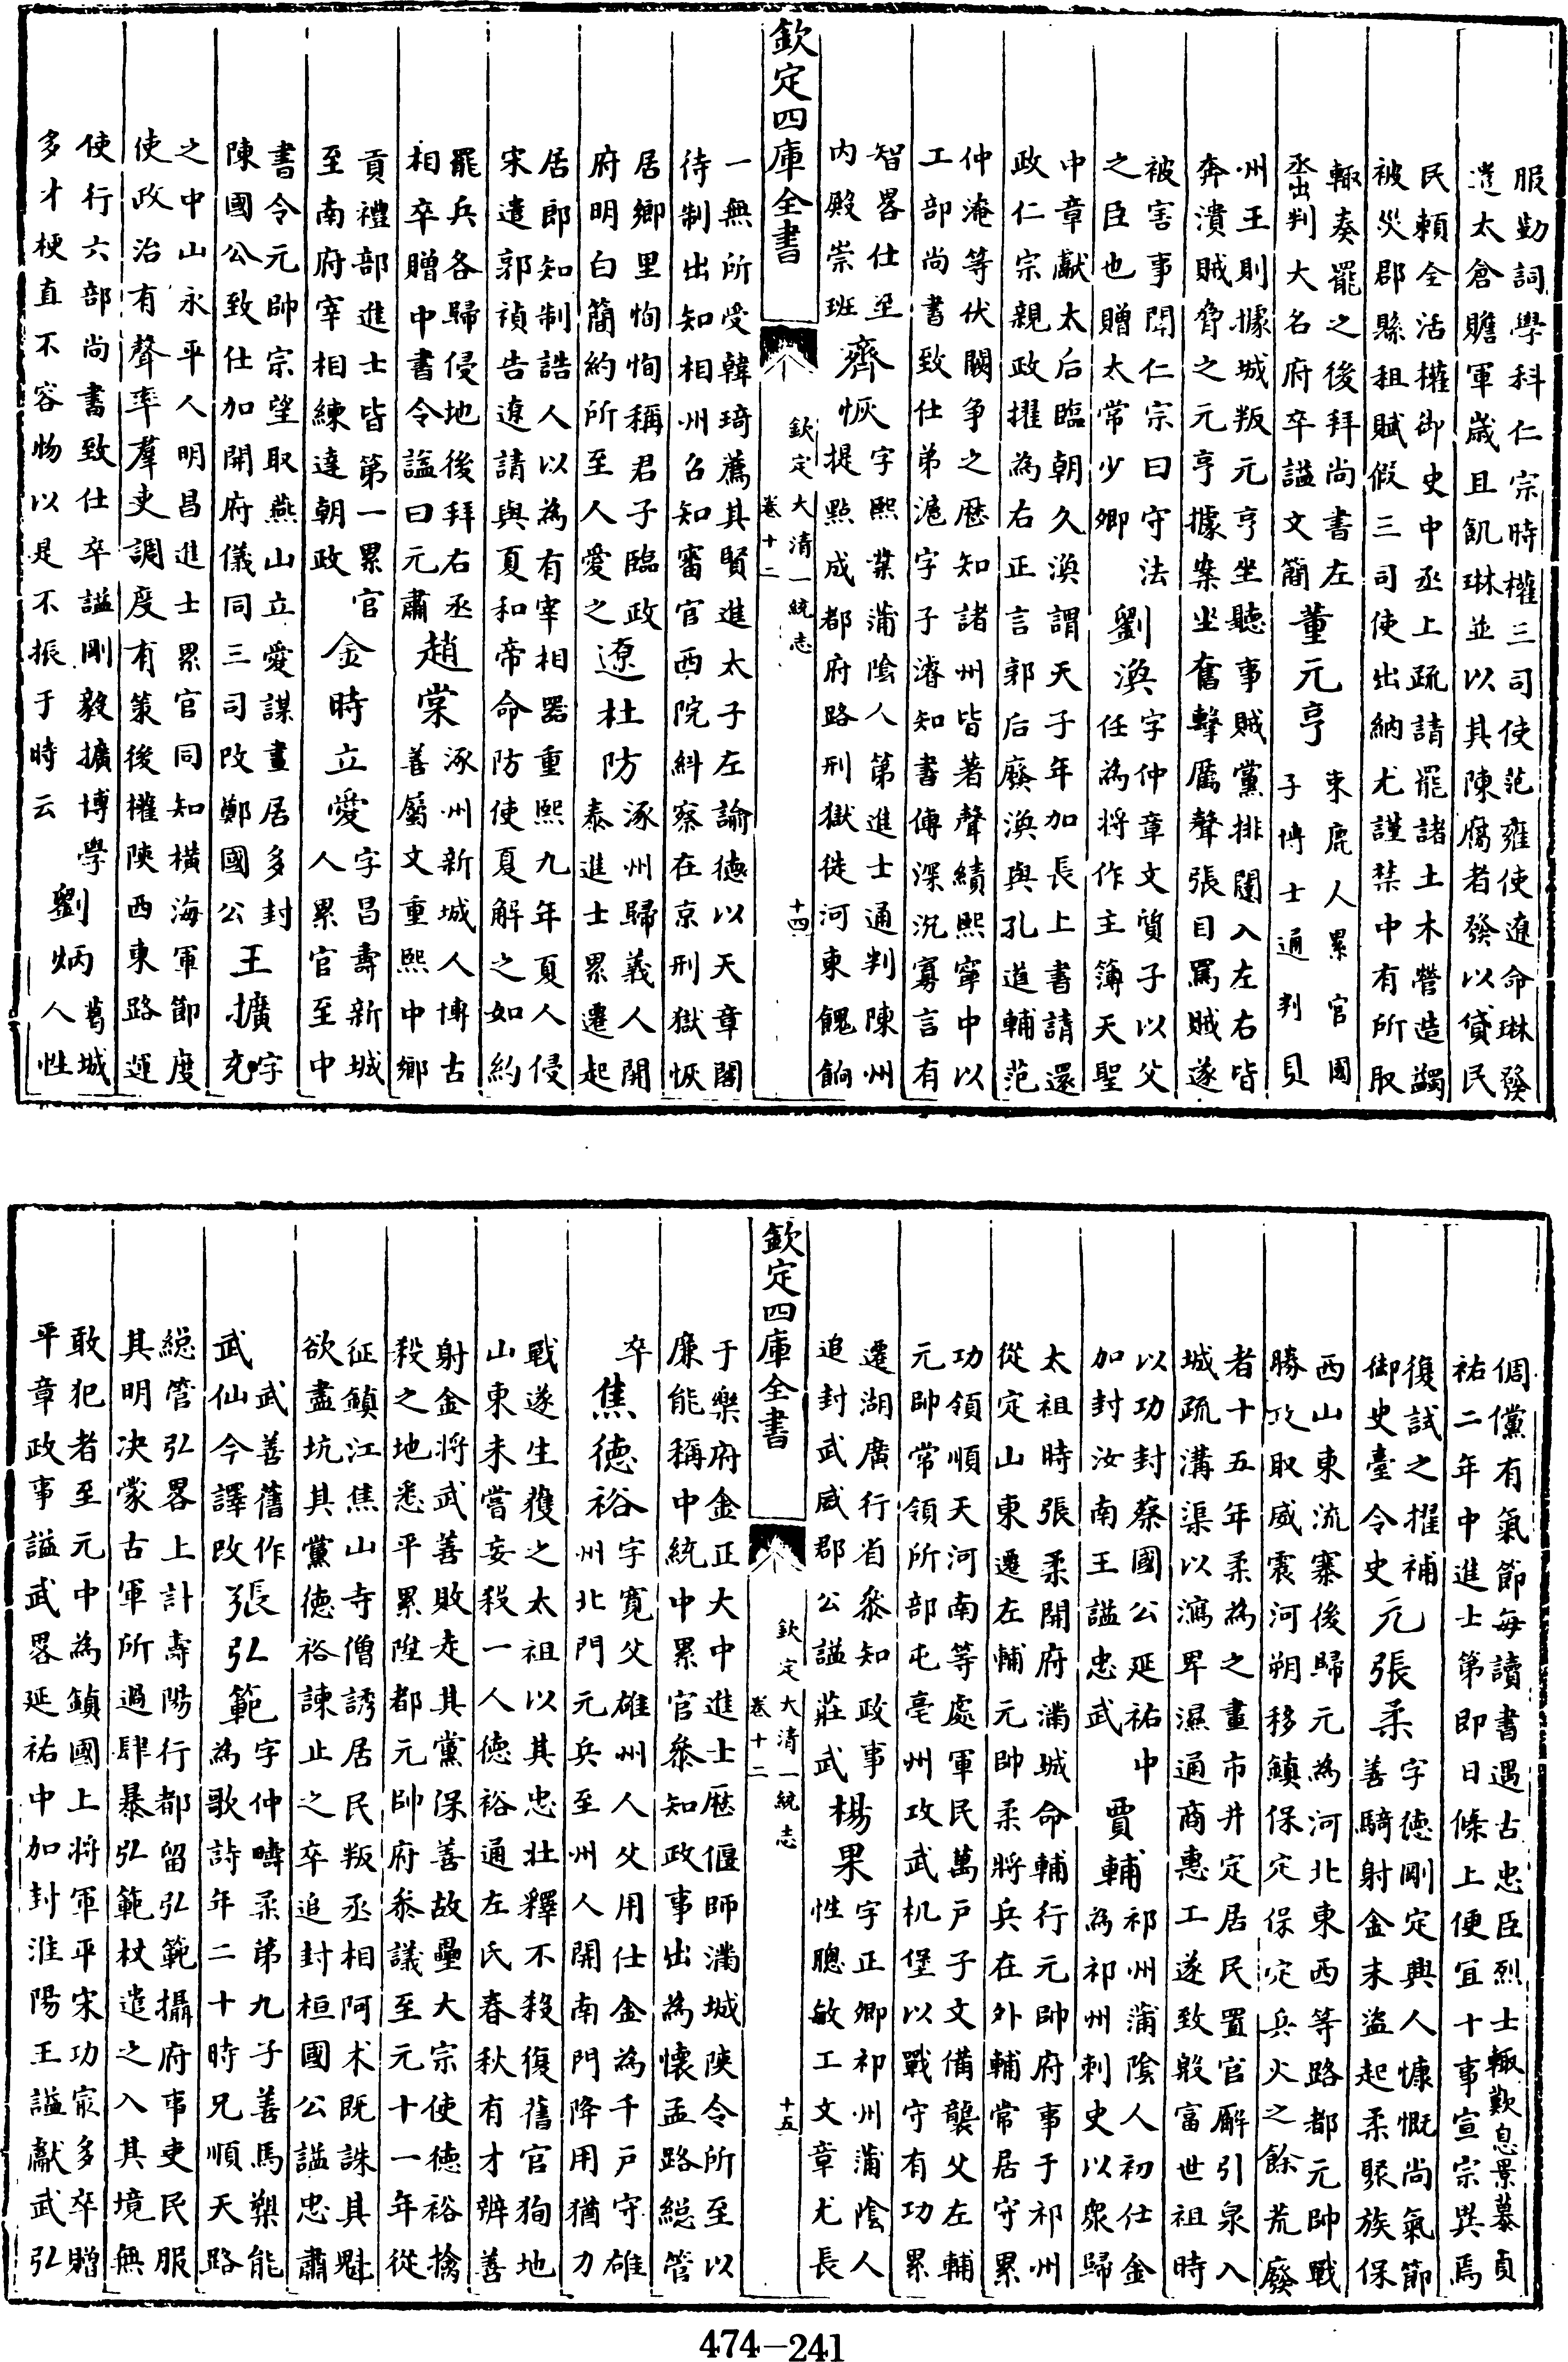 服勤詞學科仁宗時權三司使范雍使遼命琳發
遣太倉贍軍歲且飢琳並以其陳腐者發以貸民
民頼全活權御史中丞上疏請罷諸土木營造蠲
被災郡縣租賦假三司使出納尤謹禁中有所取
輒奏罷之後拜尚書左
丞出判大名府卒諡文簡
董元亨
束鹿人累官國
子博士通判貝
州王則據城叛元亨坐聽事賊黨排闥入左右皆
奔潰賊脅之元亨據案坐奮擊厲聲張目罵賊遂
被害事聞仁宗曰守法
之臣也贈太常少卿
劉渙
字仲章文質子以父
任為將作主簿天聖
中章獻太后臨朝久渙謂天子年加長上書請還
政仁宗親政擢為右正言郭后廢渙與孔道輔范
仲淹等伏闕争之歷知諸州皆著聲績熙寧中以
工部尚書致仕弟滬字子濬知書傳深沉寡言有
智畧仕至
内殿崇班
齊恢
字熙業蒲隂人第進士通判陳州
提㸃成都府路刑獄徙河東餽餉
欽定四庫全書
欽定大清一統志
卷十二
十四
一無所受韓琦薦其賢進太子左諭德以天章閣
待制出知相州召知審官西院糾察在京刑獄恢
居鄉里恂恂稱君子臨政
府明白簡約所至人愛之
遼杜防
涿州歸義人開
泰進士累遷起
居郎知制誥人以為有宰相器重熙九年夏人侵
宋遣郭禎告遼請與夏和帝命防使夏解之如約
罷兵各歸侵地後拜右丞
相卒贈中書令諡曰元肅
趙棠
涿州新城人博古
善屬文重熙中鄉
貢禮部進士皆第一累官
至南府宰相練達朝政
金時立愛
字昌壽新城
人累官至中
書令元帥宗望取燕山立愛謀畫居多封
陳國公致仕加開府儀同三司改鄭國公
王擴
字
充
之中山永平人明昌進士累官同知橫海軍節度
使政治有聲率羣吏調度有策後權陜西東路運
使行六部尚書致仕卒諡剛毅擴博學
多才梗直不容物以是不振于時云
劉炳
葛城
人性
倜儻有氣節每讀書遇古忠臣烈士輒歎息景慕貞
祐二年中進士第即日條上便宜十事宣宗異焉
復試之擢補
御史臺令史
元張柔
字德剛定興人慷慨尚氣節
善騎射金末盜起柔聚族保
西山東流寨後歸元為河北東西等路都元帥戰
勝攻取威震河朔移鎮保定保定兵火之餘荒廢
者十五年柔為之畫市井定居民置官廨引泉入
城疏溝渠以瀉畀濕通商惠工遂致殷富世祖時
以功封蔡國公延祐中
加封汝南王諡忠武
賈輔
祁州蒲隂人初仕金
為祁州刺史以衆歸
太祖時張柔開府滿城命輔行元帥府事于祁州
從定山東遷左輔元帥柔將兵在外輔常居守累
功領順天河南等處軍民萬戶子文備襲父左輔
元帥常領所部屯亳州攻武机堡以戰守有功累
遷湖廣行省叅知政事
追封武威郡公諡莊武
楊果
字正卿祁州蒲隂人
性聰敏工文章尤長
欽定四庫全書
欽定大清一統志
卷十二
十五
于樂府金正大中進士歷偃師滿城陜令所至以
廉能稱中統中累官叅知政事出為懷孟路緫管
卒
焦德裕
字寛父雄州人父用仕金為千戶守雄
州北門元兵至州人開南門降用猶力
戰遂生獲之太祖以其忠壯釋不殺復舊官狥地
山東未嘗妄殺一人德裕通左氏春秋有才辨善
射金將武善敗走其黨保善故壘大宗使德裕擒
殺之地悉平累陞都元帥府叅議至元十一年從
征鎮江焦山寺僧誘居民叛丞相阿术既誅其魁
欲盡坑其黨德裕諫止之卒追封桓國公諡忠肅
武善舊作
武仙今譯改
張弘範
字仲疇柔第九子善馬槊能
為歌詩年二十時兄順天路
緫管弘畧上計壽陽行都留弘範攝府事吏民服
其明决蒙古軍所過肆暴弘範杖遣之入其境無
敢犯者至元中為鎮國上將軍平宋功㝡多卒贈
平章政事諡武畧延祐中加封淮陽王諡獻武弘
474-241